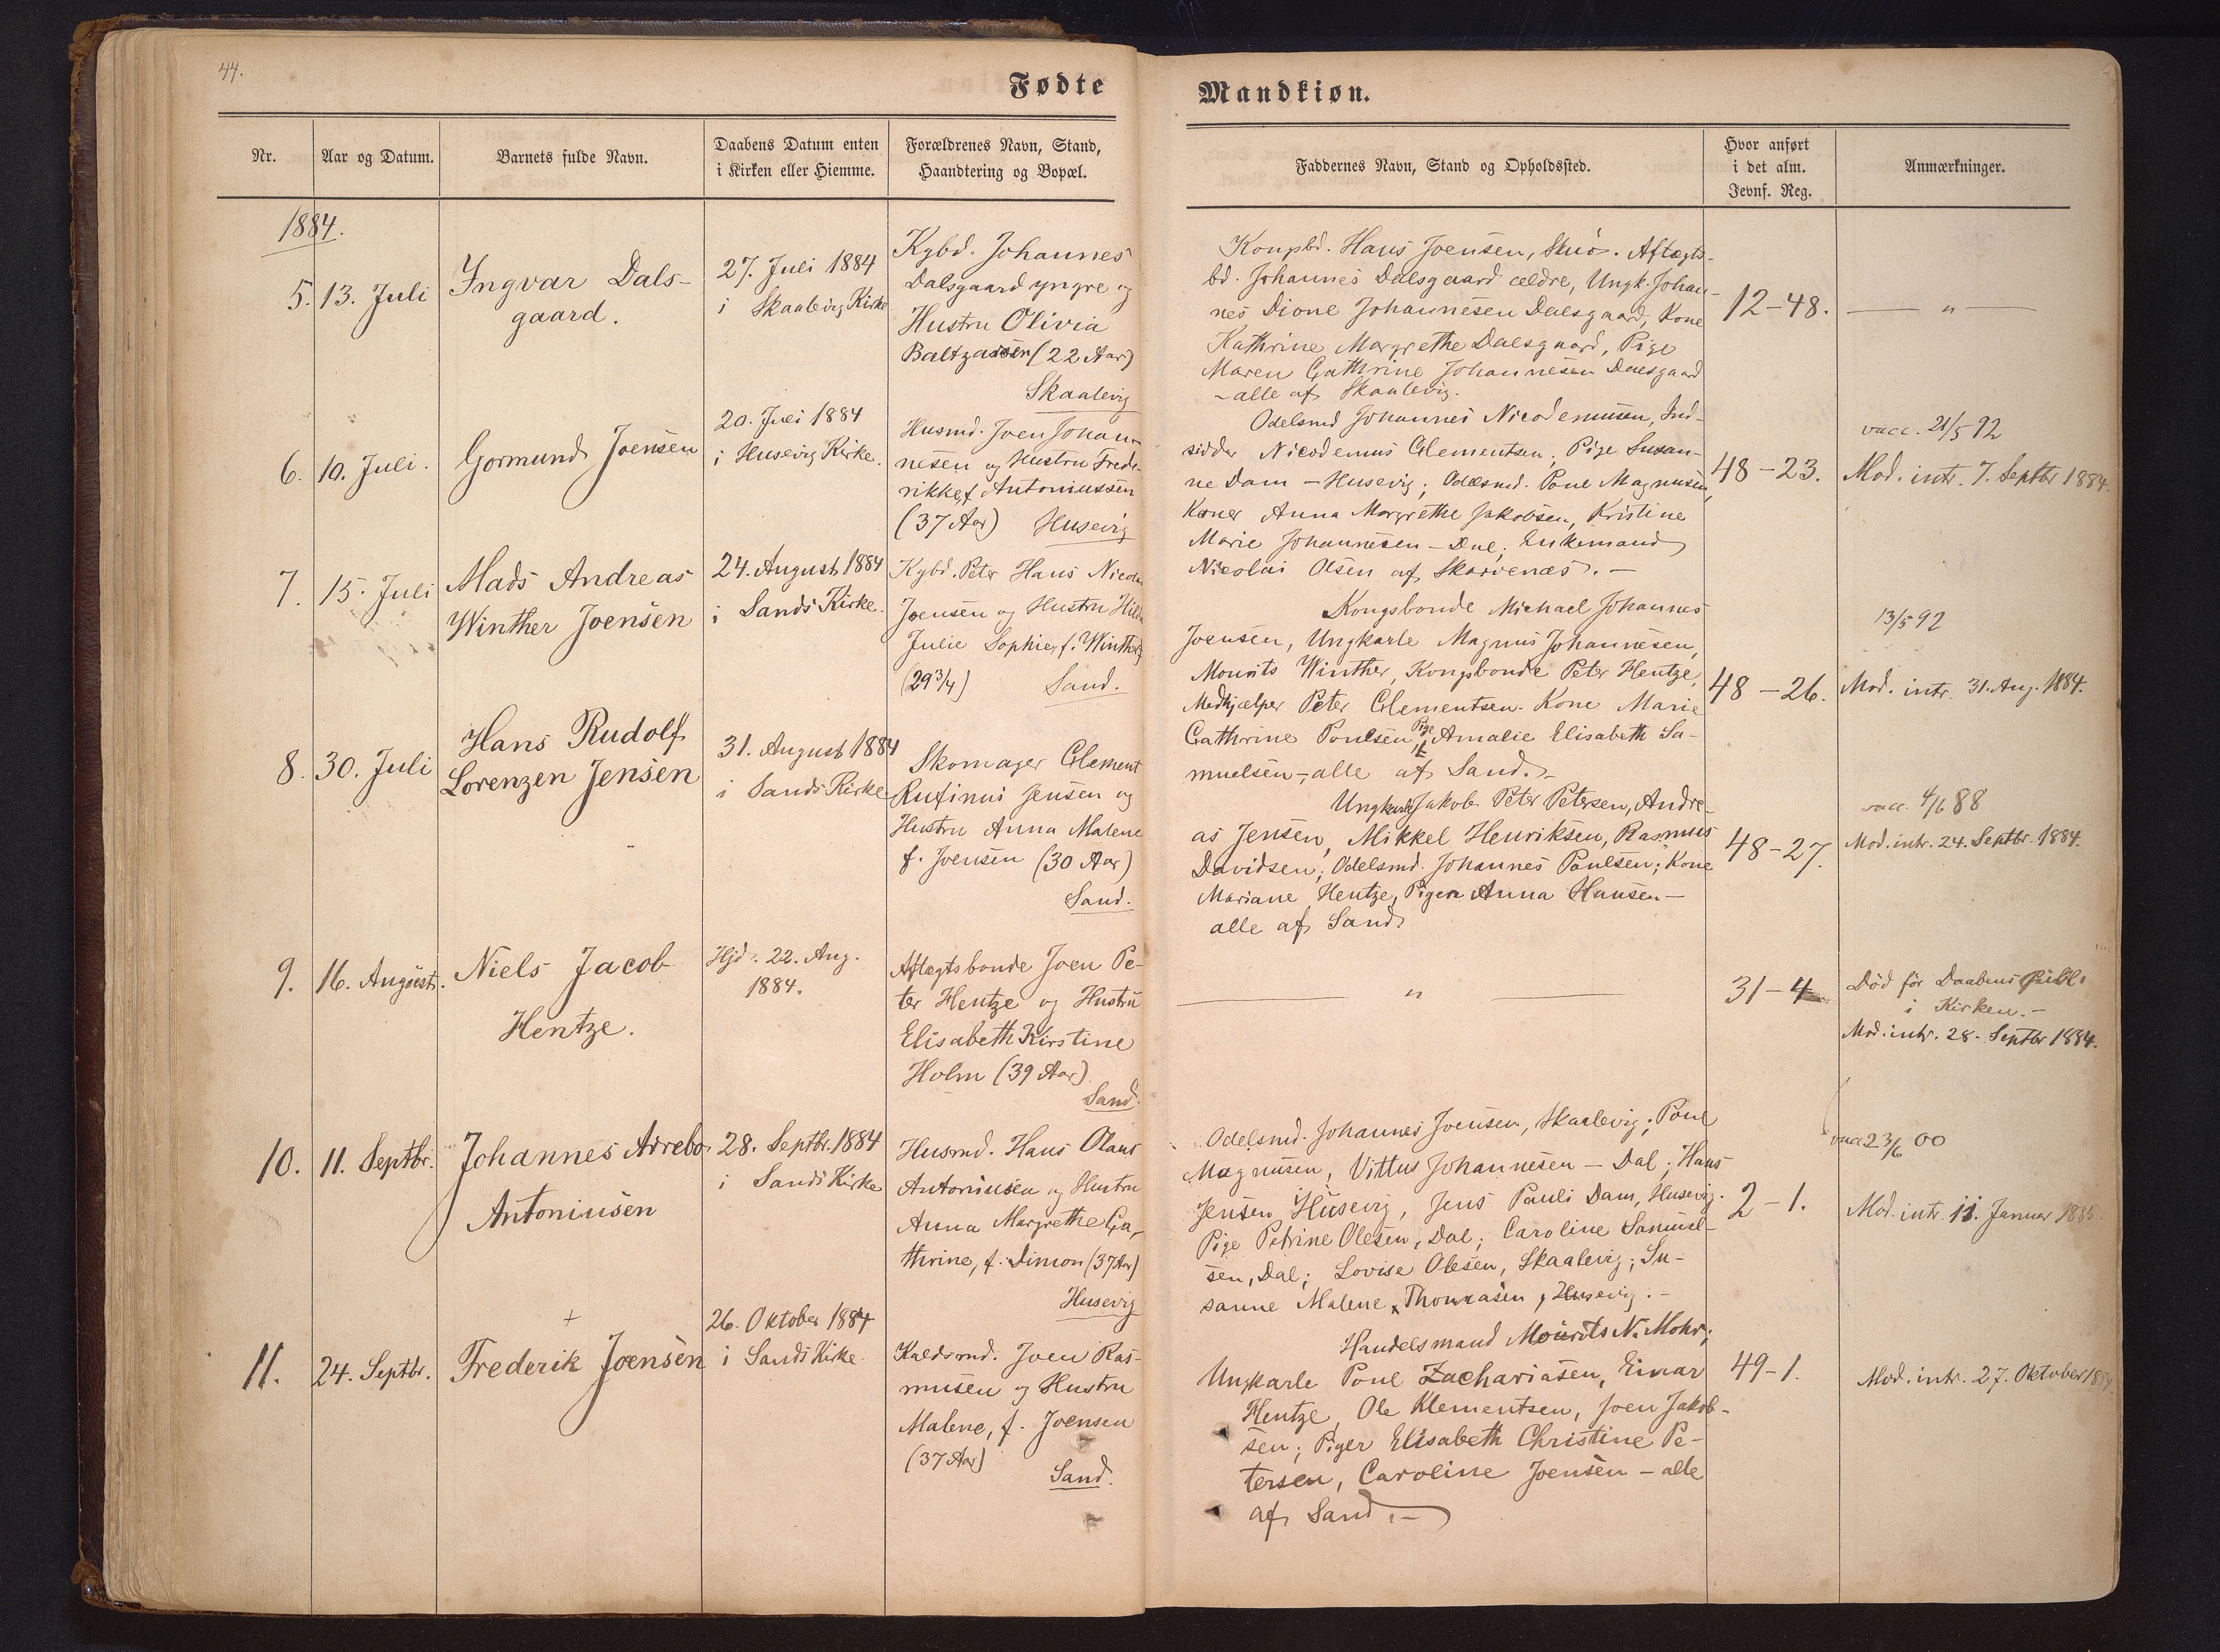 44.
Fødte
Mandkiøn.
Nr.
Aar og Datum.
Barnets fulde Navn.
Daabens Datum enten
i Kirken eller Hiemme.
Forældrenes Navn, Stand,
Haandtering og Bopæl.
Faddernes Navn, Stand og Opholdssted.
Hvor anført
i det alm.
Jevnf. Reg.
Anmærkninger.
1884.
5. 13. Juli
Yngvar Dals-
gaard.
27. Juli 1884
i Skaalevig Kirke
Kgbd. Johannes
Dalsgaard yngre og
Hustru Olivia
Baltzarsen (22 Aar)
Skaalevig
Kongsbd. Hans Joensen, Skuö. Aftægts-
bd. Johannes Dalsgaard ældre, Ungk. Johan-
nes Dione Johannesen Dalsgaard, Kone
Kathrine Margrethe Dalsgaard, Pige
Maren Cathrine Johannesen Dalsgaard
- alle af Skaalevig.
12-48.
— " —
6. 10. Juli.
Gormund Joensen
20. Juli 1884
i Husevig Kirke.
Husmd. Joen Johan-
nesen og Hustru Frede-
rikke f. Antoniussen
(37 Aar) Husevig
Odelsmd Johannes Nicodemusen, Ind-
sidder Nicodemus Clementsen, Pige Susan-
ne Dam - Husevig; Odelsmd. Poul Magnusen,
Koner Anna Margrethe Jakobsen, Kristine
Marie Johannesen - Dal; Enkemand
Nicolai Olsen af Skarvenæs. -
48-23.
vacc. 21/5 92
Mod. intr. 7. Septbr 1884.
7. 15. Juli
Mads Andreas
Winther Joensen
24. August 1884
i Sands Kirke.
Kgbd. Peter Hans
Joensen og Hustru
Julie Sophie, f. Winther
(29 3/4) Sand.
Kongsbonde Michael Johannes
Joensen, Ungkarle Magnus Johannesen,
Mourits Winther, Kongsbonde Peter Hentze,
Medhjælper Peter Clementsen. Kone Marie
Cathrine Poulsen, Pige Amalie Elisabeth Sa-
muelsen - alle af Sand. -
48-26.
13/5 92
Mod. intr. 31. Aug. 1884.
8. 30. Juli
Hans Rudolf
Lorenzen Jensen
31. August 1884
i Sands Kirke
Skomager Clement
Rufinus Jensen og
Hustru Anna Malene
f. Joensen (30 Aar)
Sand.
Ungkarle Jakob Peter Petersen, Andre-
as Jensen, Mikkel Henriksen, Rasmus
Davidsen; Odelsmd. Johannes Poulsen; Kone
Mariane Hentze, Pigen Anna Hansen -
alle af Sand.
48-27.
vacc. 4/6 88
Mod. intr. 24. Septbr. 1884.
9. 16. August.
Niels Jacob
Hentze.
Hjd. 22. Aug.
1884.
Aftægtsbonde Joen Pe-
ter Hentze og Hustru
Elisabeth Kirstine
Holm (39 Aar)
Sand.
— " —
31-4
Död för Daabens Publ.
i Kirken. -
Mod. intr. 28. Septbr 1884.
10. 11. Septbr.
Johannes Arrebo
Antoniusen
28. Septbr. 1884
i Sands Kirke
Husmd. Hans Olaus
Antoniusen og Hustru
Anna Margrethe Ca-
thrine, f. Simon (37 Aar)
Husevig
Odelsmd. Johannes Joensen, Skaalevig; Poul
Magnusen, Vittus Johannesen - Dal; Hans
Jensen Husevig, Jens Pauli Dam, Husevig.
Pige Petrine Olesen, Dal; Caroline Samuel-
sen, Dal; Lovise Olesen, Skaalevig; Su-
sanne Malene Thomasen, Husevig. -
2-1.
vacc 23/6 00
Mod. intr. 11. Januar 1885
11. 24. Septbr.
+
Frederik Joensen
26. Oktober 1884
i Sands Kirke.
Joen Ras-
musen og Hustru
Malene, f. Joensen
(37 Aar)
Sand.
Handelsmand Mourits N. Mohr;
Ungkarle Poul Zachariasen, Einar
Hentze, Ole Klementsen, Joen Jakob-
sen; Piger Elisabeth Christine Pe-
tersen, Caroline Joensen - alle
af Sand. -
49-1.
Mod. intr. 27. Oktober 1884